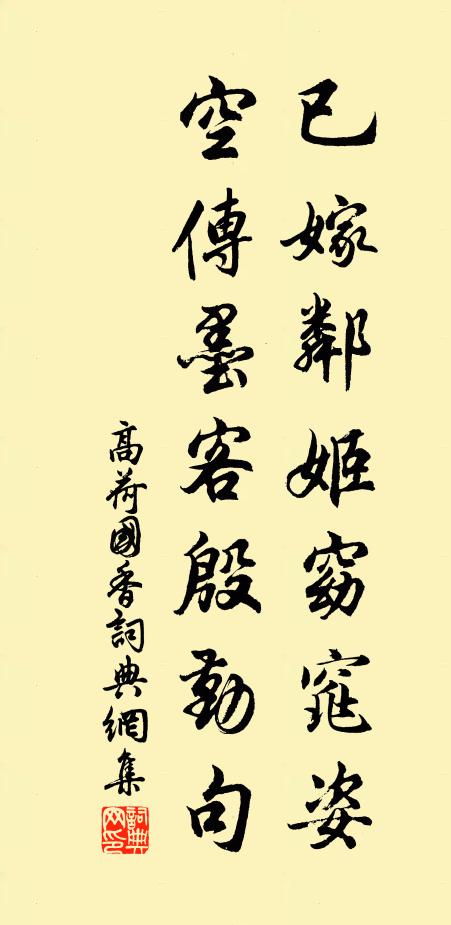 已嫁鄰姬窈窕姿
空傳墨客殷勤句
高荷國香詞典網集
詞典网印